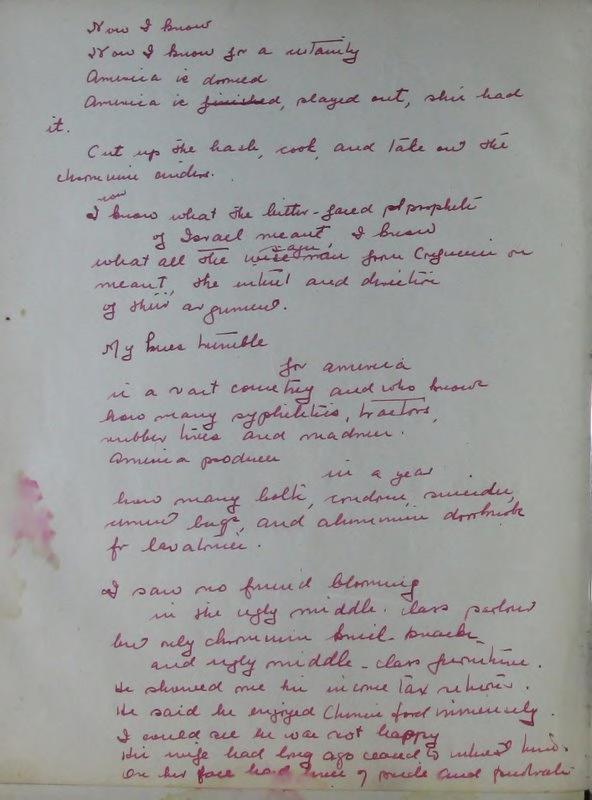 Now I know
Now I know for a certainty
America is doomed
America is finished, played out, she's had
it.
Cut up the hash, cook, and take out the
chromium cinders.
now
I know what the bitter-faced prophets
of Israel meant, I know
sages,
what all the wise man from Confucius on
meant, the intent and direction
of their argument.
My knees tremble
for america
is a vast country and who knows
how many syphilitics, tractors,
rubber tires and madmen
America produces
in a year
how many bolts, condoms, suicides,
bugs, and aluminium doorknobs
for lavatories.
I saw no friend blooming
in the ugly middle-class parlour
but only chromium knick-knacks
and ugly middle-class furniture.
He showed me his income tax returns.
He said he enjoyed Chinese food immensely.
I could see he was not happy
His wife had long ago ceased to interest him.
On her face had lines of and